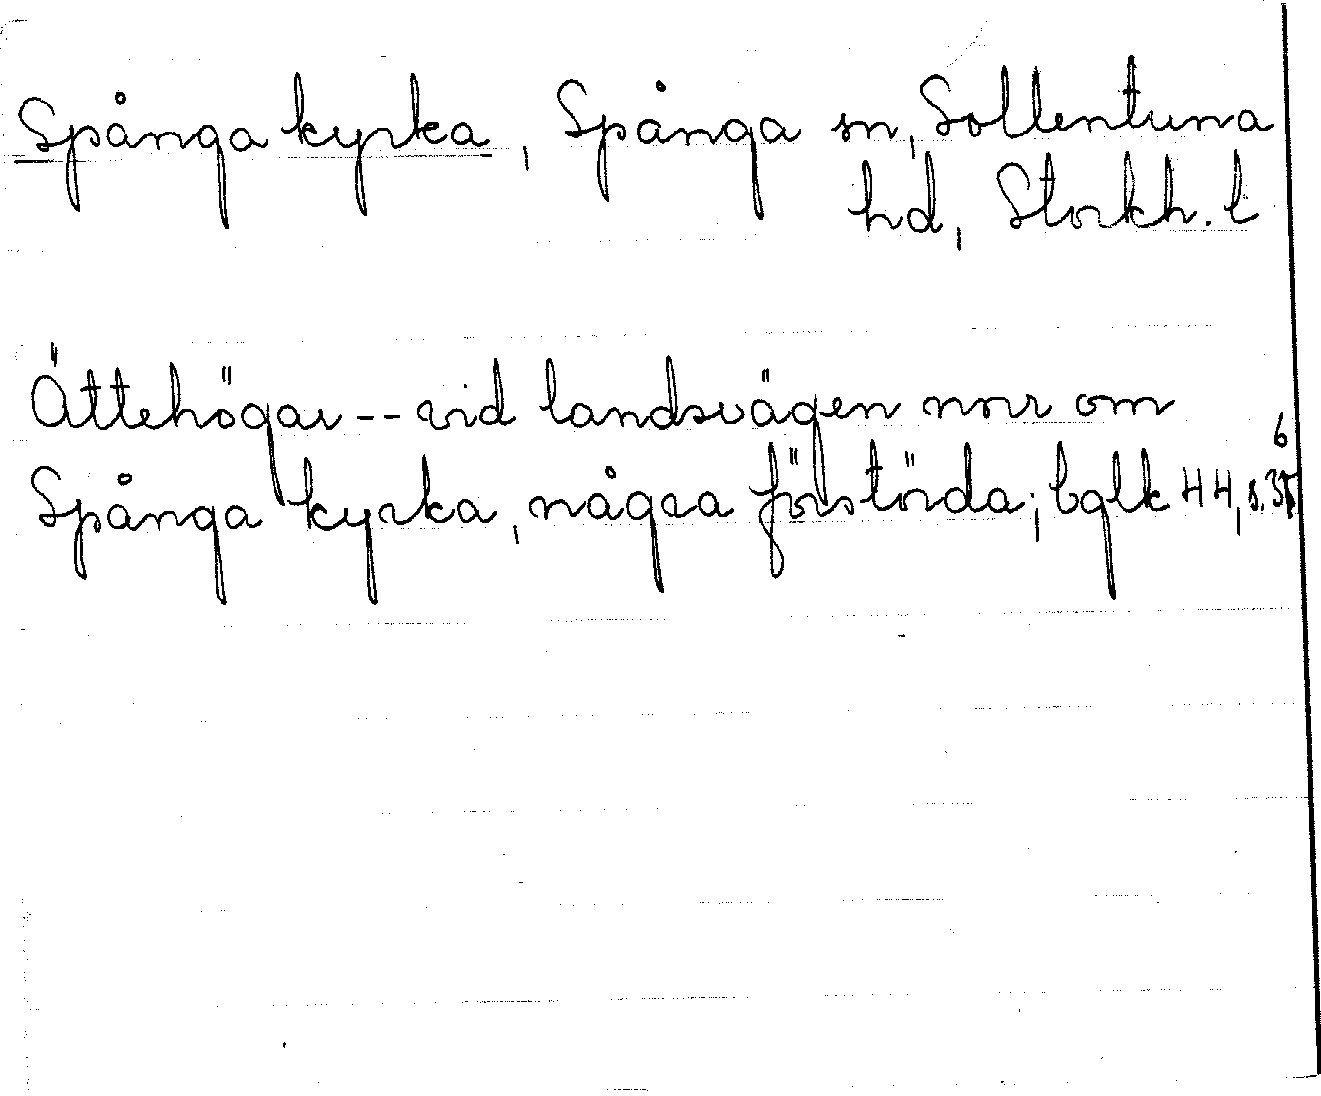 Spånga kyrka, Spånga sn, Sollentuna
hd, Stockh. l
Ättehögar -- vid landsvägen norr om
Spånga kyrka, några förstörda; bglk 44, s.